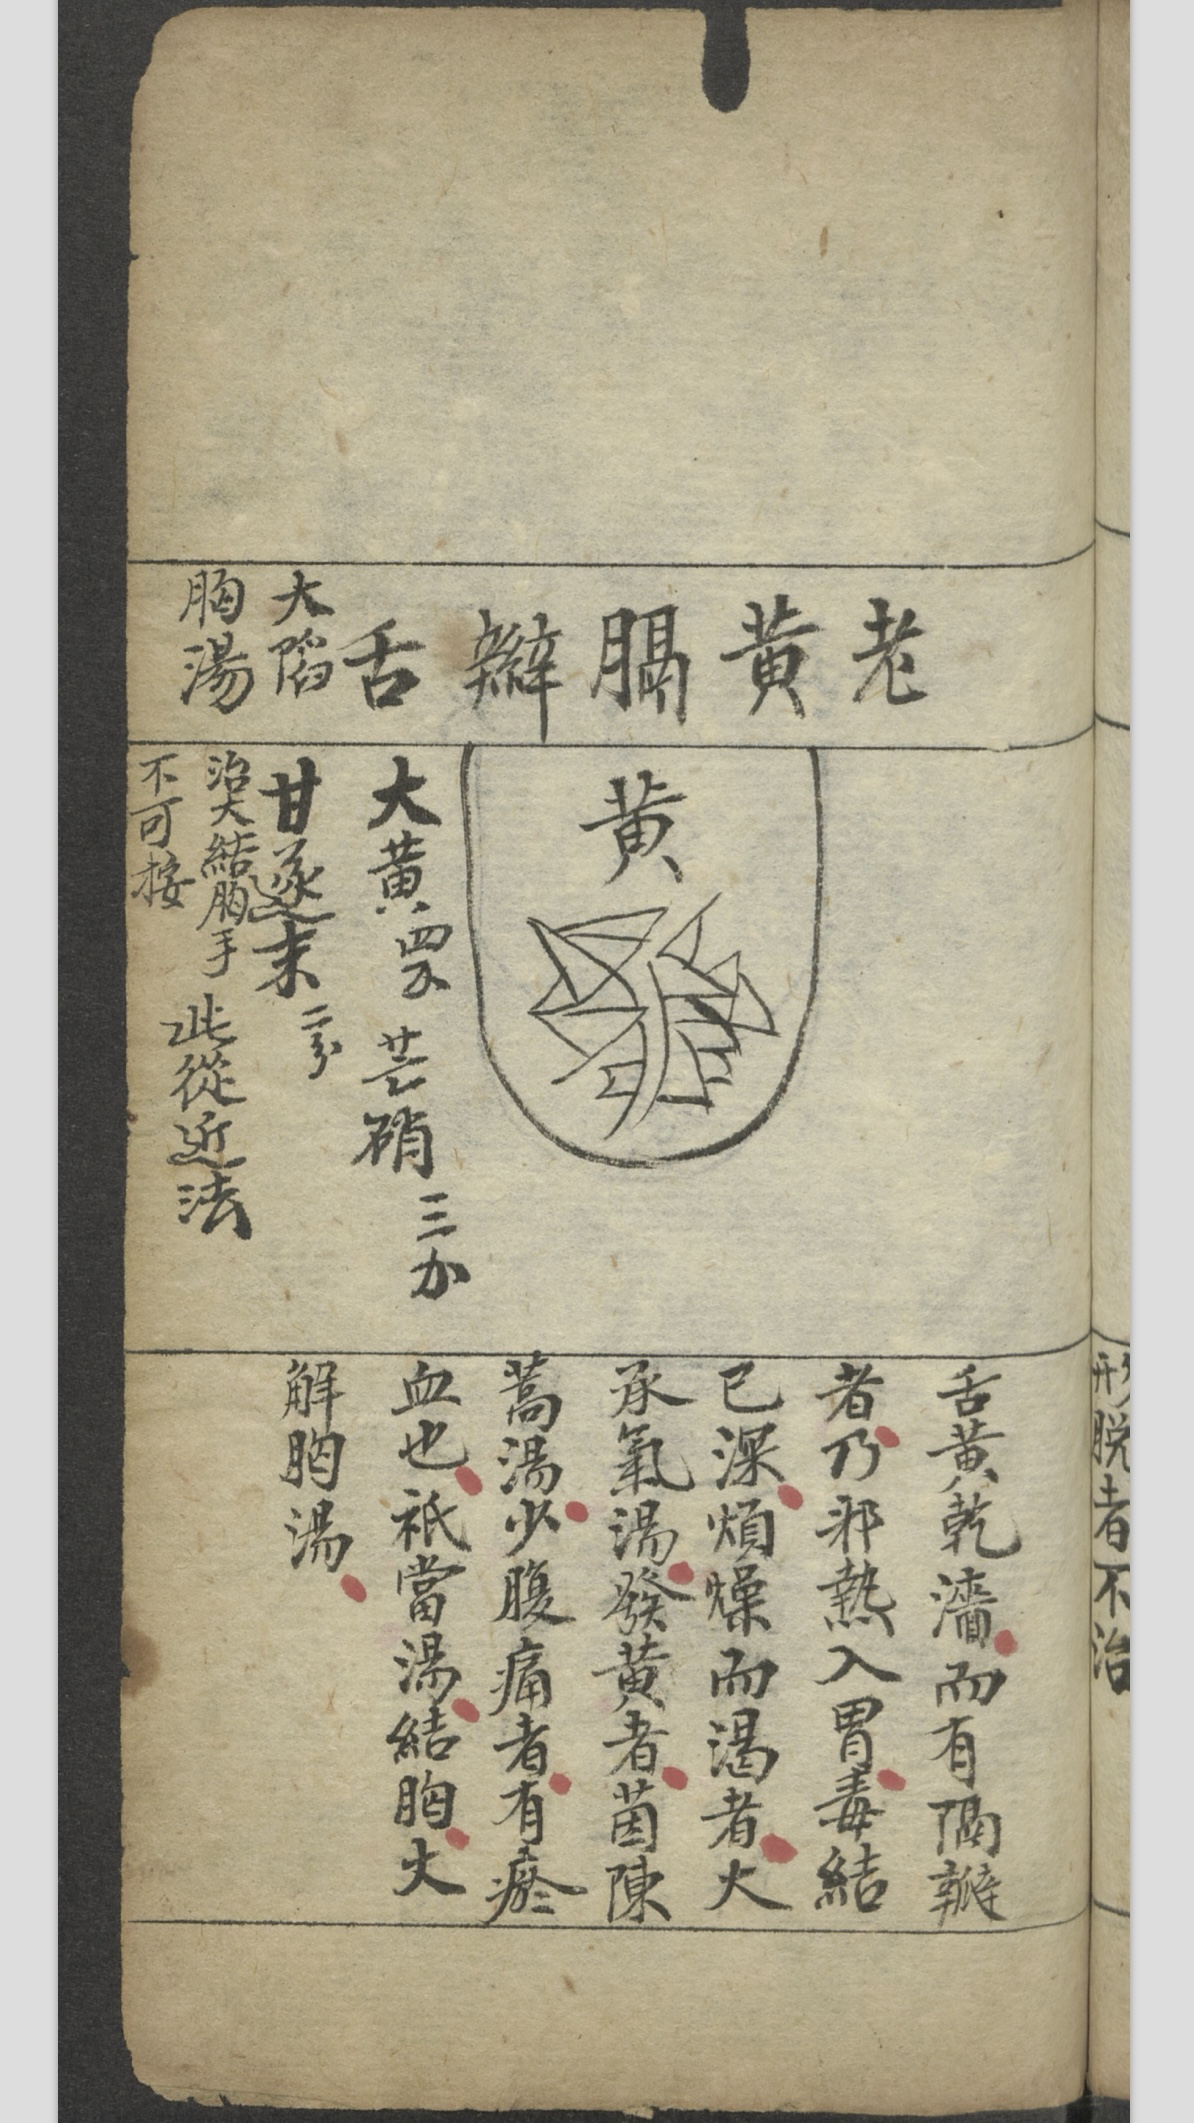 老黃膈瓣舌
大陷
胸湯
黃
大黃四兩 芒硝三分
甘遂末二分
治大結胸手
不可按
此從近法
舌黃乾濇而有隔瓣
者乃邪熱入胃毒結
已深煩燥而渴者大
承氣湯發黃者茵陳
蒿湯少腹痛者有瘀
血也祇當湯結胸大
解胸湯
形脱者不治